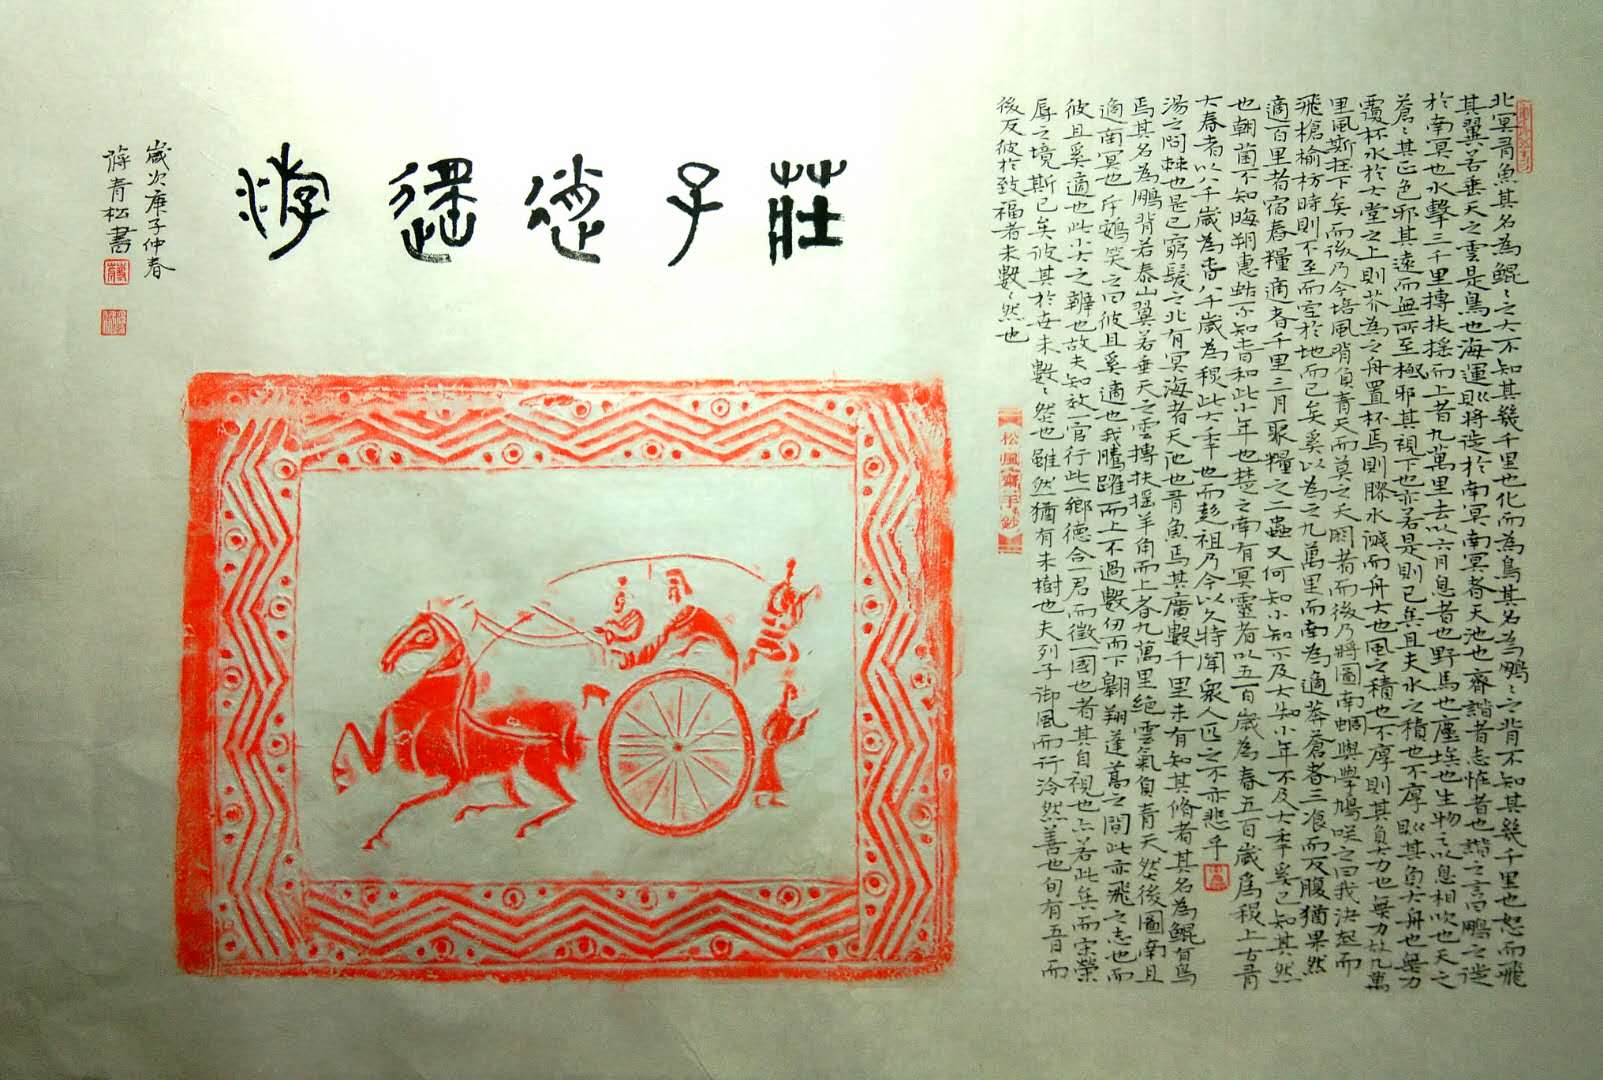 北冥有魚其名為鯤〻之大不知其幾千里也化而為鳥其名為鵬〻之背不知其幾千里也怒而飛
其翼若垂天之雲是鳥也海運則將徙於南冥南冥者天池也齊諧者志怪者也諧之言曰鵬之徙
於南冥也水擊三千里摶扶搖而上者九萬里去以六月息者也野馬也塵埃也生物之以息相吹也天之
蒼〻其正色邪其遠而無所至極邪其視下也亦若是則已矣且夫水之積也不厚則其負大舟也無力
覆杯水於大堂之上則芥為之舟置杯焉則膠水淺而舟大也風之積也不厚則其負大力也無力故九萬
里風斯在下矣而後乃今培風背負青天而莫之夭閼者而後乃將圖南蜩與學鳩咲之曰我決起而
飛槍榆枋時則不至而控於地而已矣奚以為之九萬里而南為適莽蒼者三飡而反腹猶果然
適百里者宿舂糧適者千里三月聚糧之二蟲又何知小知不及大知小年不及大年奚已知其然
也朝菌不知晦朔惠蛄不知春秋此小年也楚之南有冥靈者以五百歲為春五百歲為秋上古有
大春者以八千歲為春八千歲為秋此大年也而彭祖乃今以久特聞眾人匹之不亦悲乎
湯之問棘也是已窮髮之北有冥海者天池也有魚焉其廣數千里未有知其修者其名為鯤有鳥
焉其名為鵬背若泰山翼若垂天之雲摶扶搖羊角而上者九萬里絕雲氣負青天然後圖南且
適南冥也斥鴳笑之曰彼且奚適也我騰躍而上不過數仞而下翱翔蓬蒿之間此亦飛之志也而
彼且奚適也此小大之辯也故夫知效一官行此鄉德合一君而徵一國也者其自視也亦若此矣而宋榮
辱之境斯已矣彼其於世未數〻然也雖然猶有未樹也夫列子御風而行泠然善也旬有五日而
後反彼於致福者未數〻然也
松風齋手鈔
莊子逍遙游
歲次庚子仲春
蔣青松書